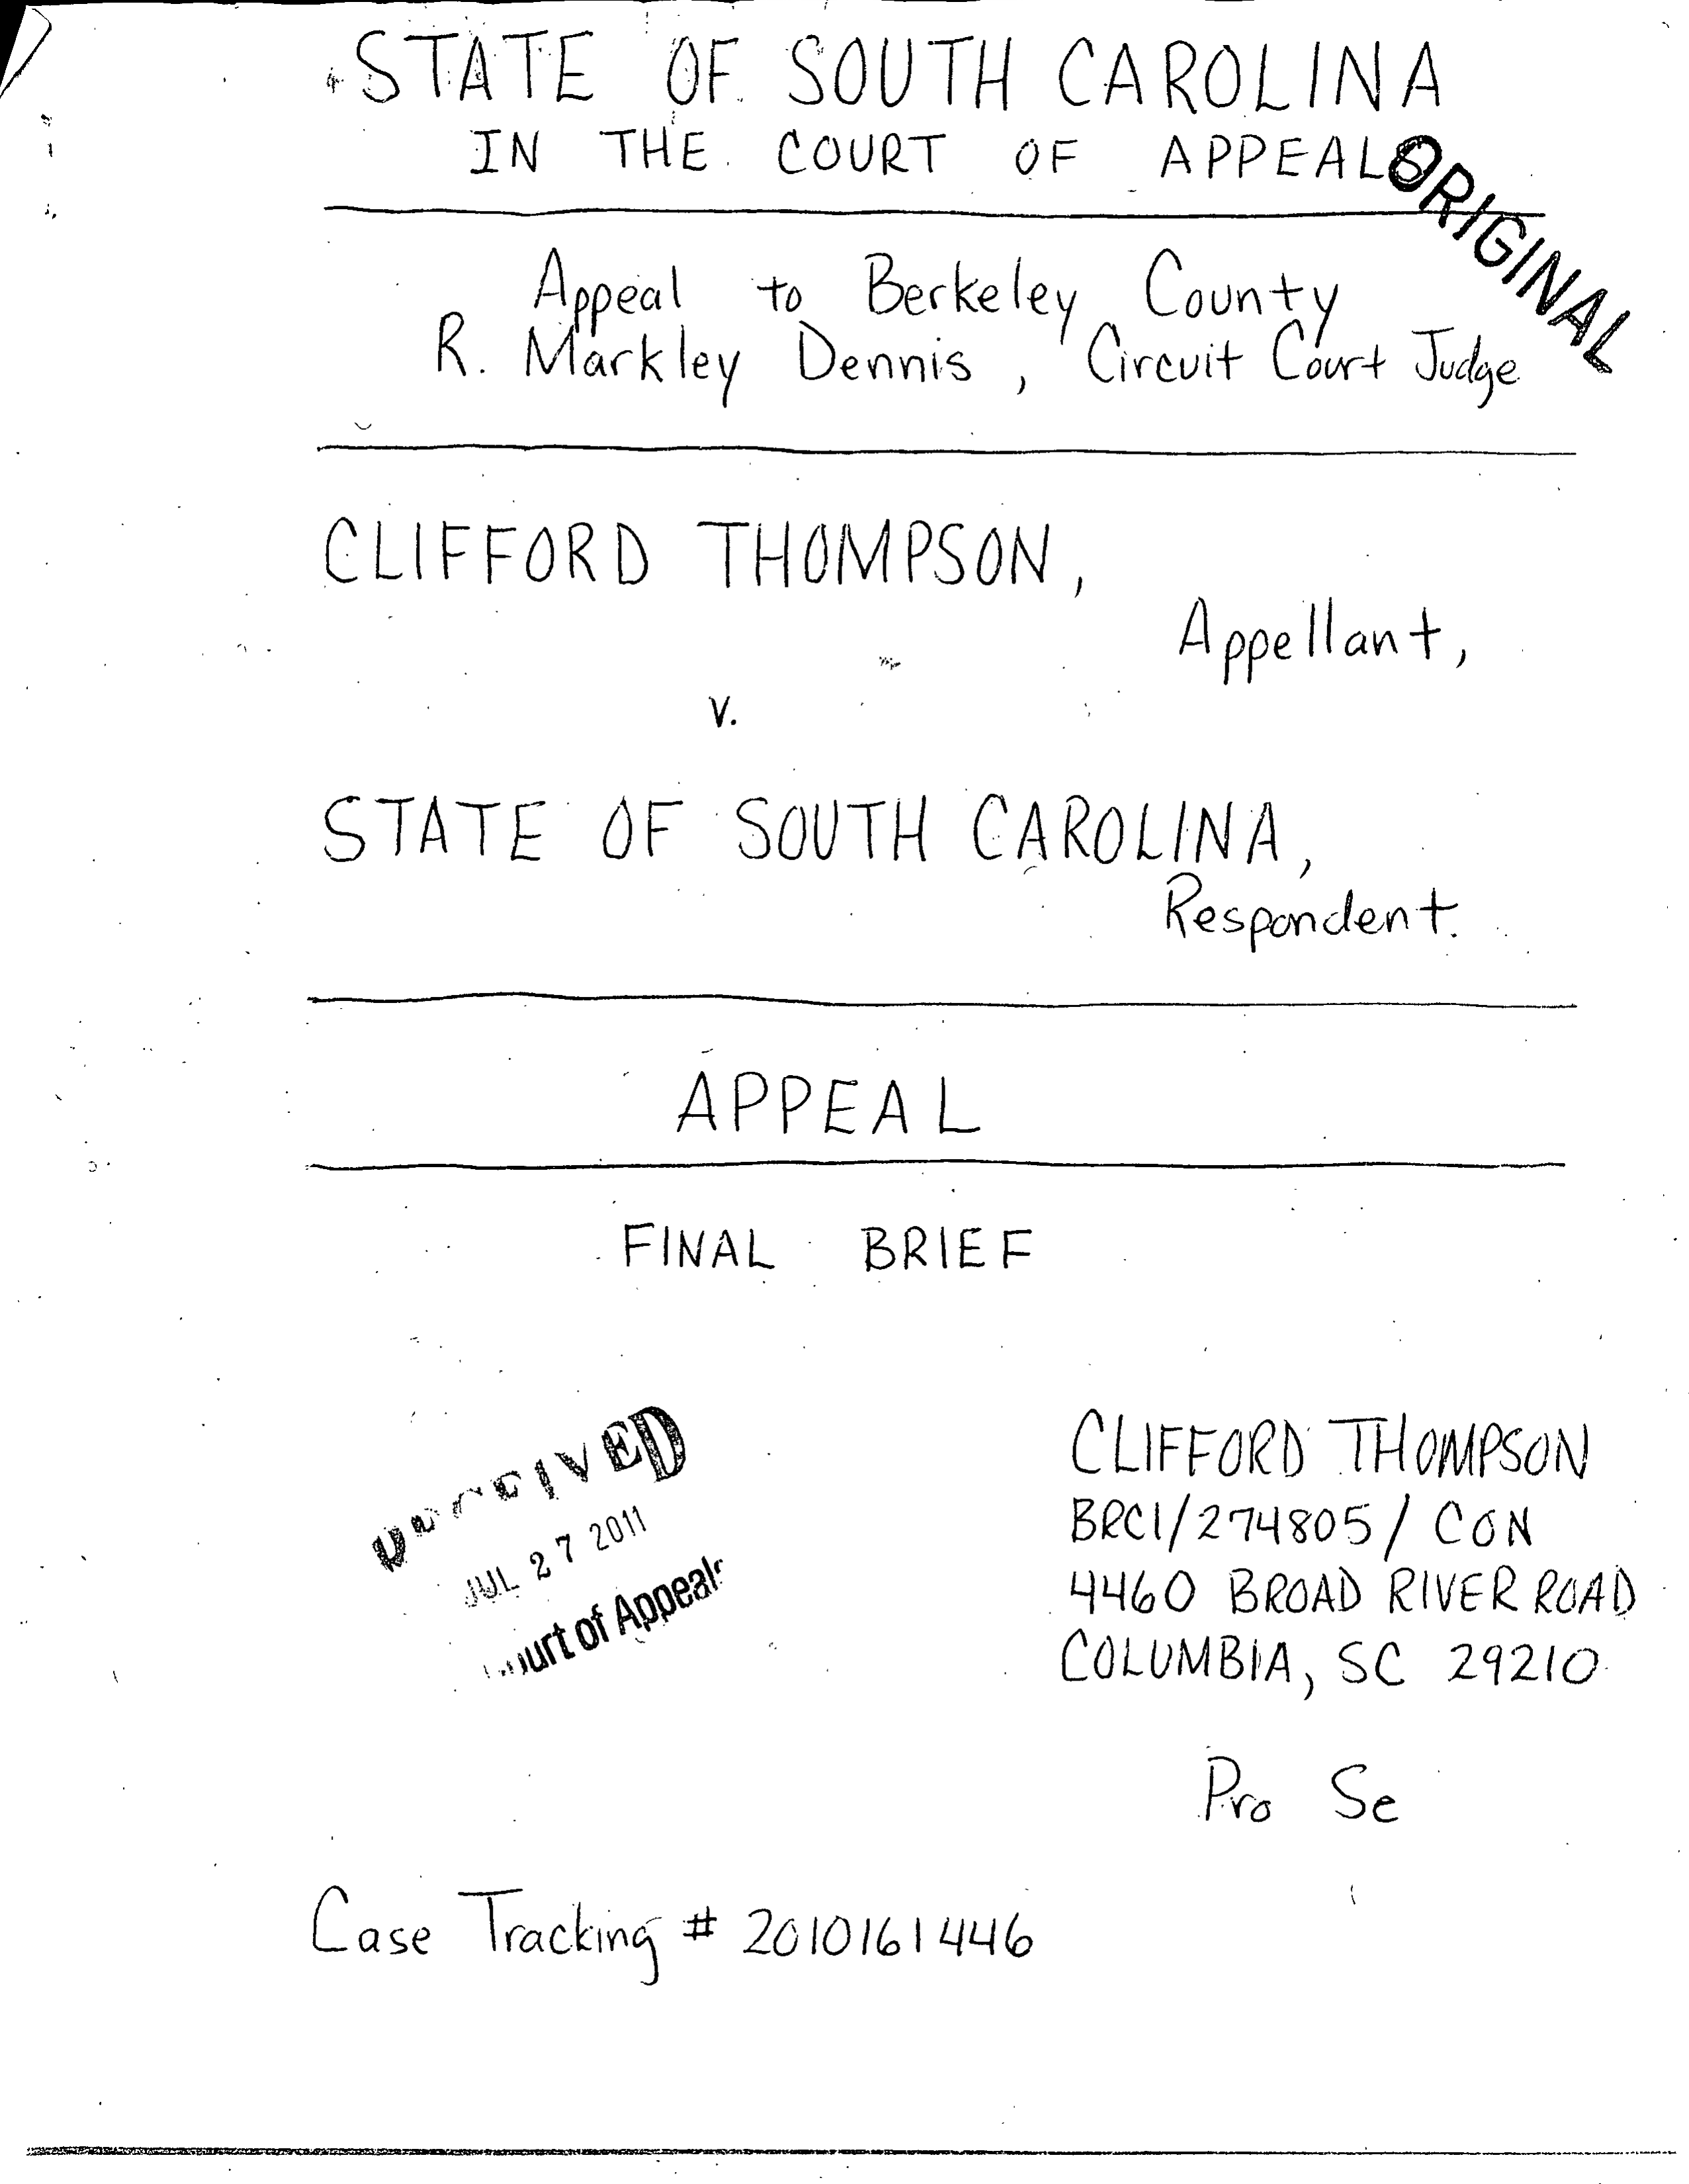 STATE OF SOUTH CAROLINA
IN THE COURT OF APPEALS
ORIGINAL
Appeal to Berkeley County
R. Markley Dennis, Circuit Court Judge
CLIFFORD THOMPSON,
Appellant,
v.
STATE OF SOUTH CAROLINA,
Respondent.
APPEAL
FINAL BRIEF
RECEIVED
JUL 27 2011
Court of Appeals
CLIFFORD THOMPSON
BRCI/274805/CON
4460 BROAD RIVER ROAD
COLUMBIA, SC 29210
Pro Se
Case Tracking # 2010161446